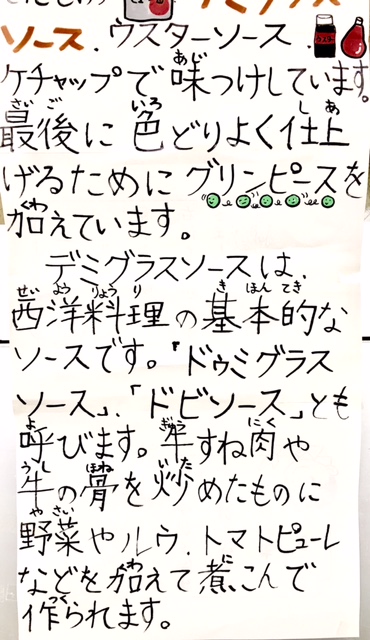 デミグラス
ソース、ウスターソース、
ケチャップで味つけしています。
最後に色どりよく仕上
げるためにグリンピースを
加えています。
デミグラスソースは、
西洋料理の基本的な
ソースです。「ドゥミグラス
ソース」、「ドビソース」とも
呼びます。牛すね肉や
牛の骨を炒めたものに
野菜やルウ、トマトピューレ
などを加えて煮こんで
作られます。